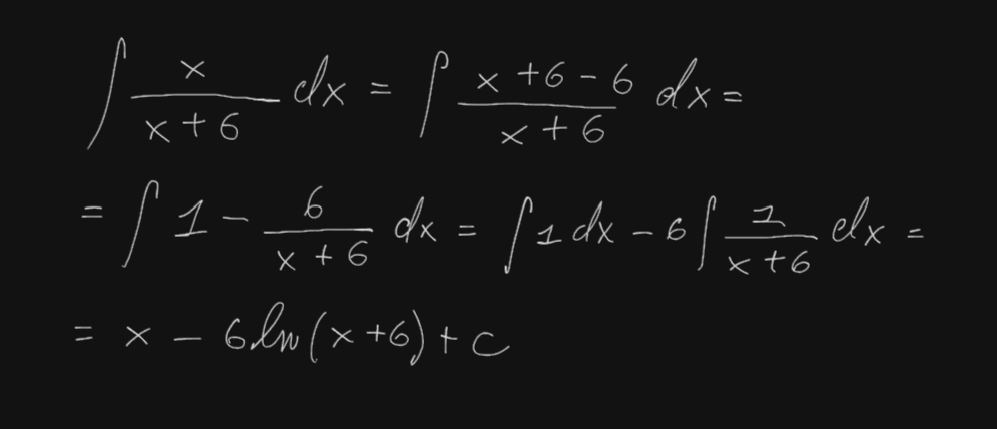 ∫ x/(x+6) dx = ∫ (x+6-6)/(x+6) dx =
= ∫ 1 - 6/(x+6) dx = ∫ 1 dx - 6 ∫ 1/(x+6) dx =
= x - 6 ln(x+6) + c